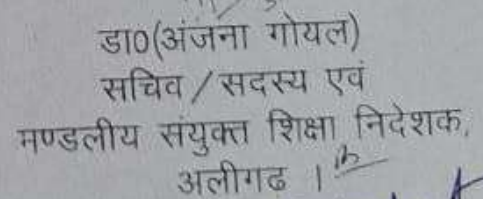 डा0(अंजना गोयल)
सचिव / सदस्य एवं
मण्डलीय संयुक्त शिक्षा निदेशक,
अलीगढ ।